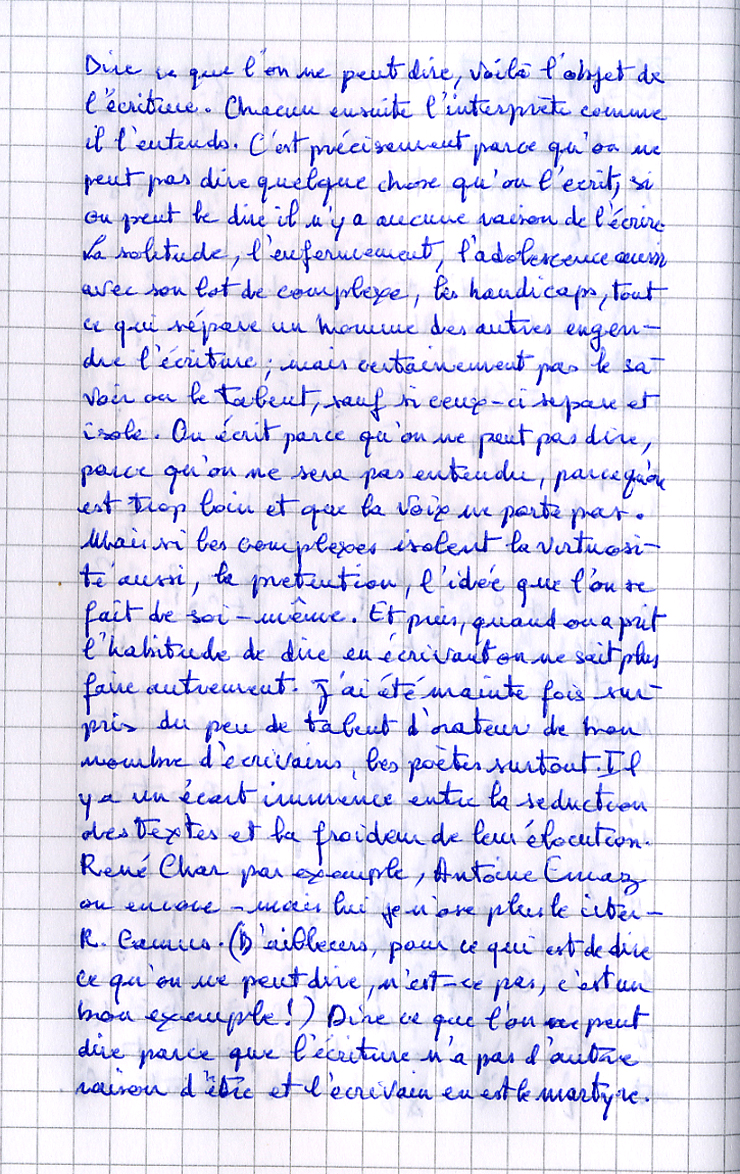 Dire ce que l'on ne peut dire, voilà l'objet de
l'écriture. Chacun ensuite l'interprète comme
il l'entends. C'est précisement parce qu'on ne
peut pas dire quelque chose qu'on l'écrit, si
on peut le dire il n'y a aucune raison de l'écrire.
La solitude, l'enfermement, l'adolescence aussi
avec son lot de complexe, les handicaps, tout
ce qui sépare un homme des autres engen-
dre l'écriture ; mais certainement pas le sa-
voir ou le talent, sauf si ceux-ci sépare et
isole. On écrit parce qu'on ne peut pas dire,
parce qu'on ne sera pas entendu, parce qu'on
est trop loin et que la voix ne porte pas.
Mais si les complexes isolent la virtuosi-
té aussi, la pretention, l'idée que l'on se
fait de soi-même. Et puis, quand on a prit
l'habitude de dire en écrivant on ne sait plus
faire autrement. J'ai été mainte fois sur-
pris du peu de talent d'orateur de bon
nombre d'écrivains, les poètes surtout. Il
y a un écart immence entre la seduction
des textes et la froideur de leur élocution.
René Char par exemple, Antoine Emaz
ou encore - mais lui je n'ose plus le citer -
R. Camus. (D'ailleurs, pour ce qui est de dire
ce qu'on ne peut dire, n'est-ce pas, c'est un
bon exemple !) Dire ce que l'on ne peut
dire parce que l'écriture n'a pas d'autre
raison d'être et l'écrivain en est le martyre.